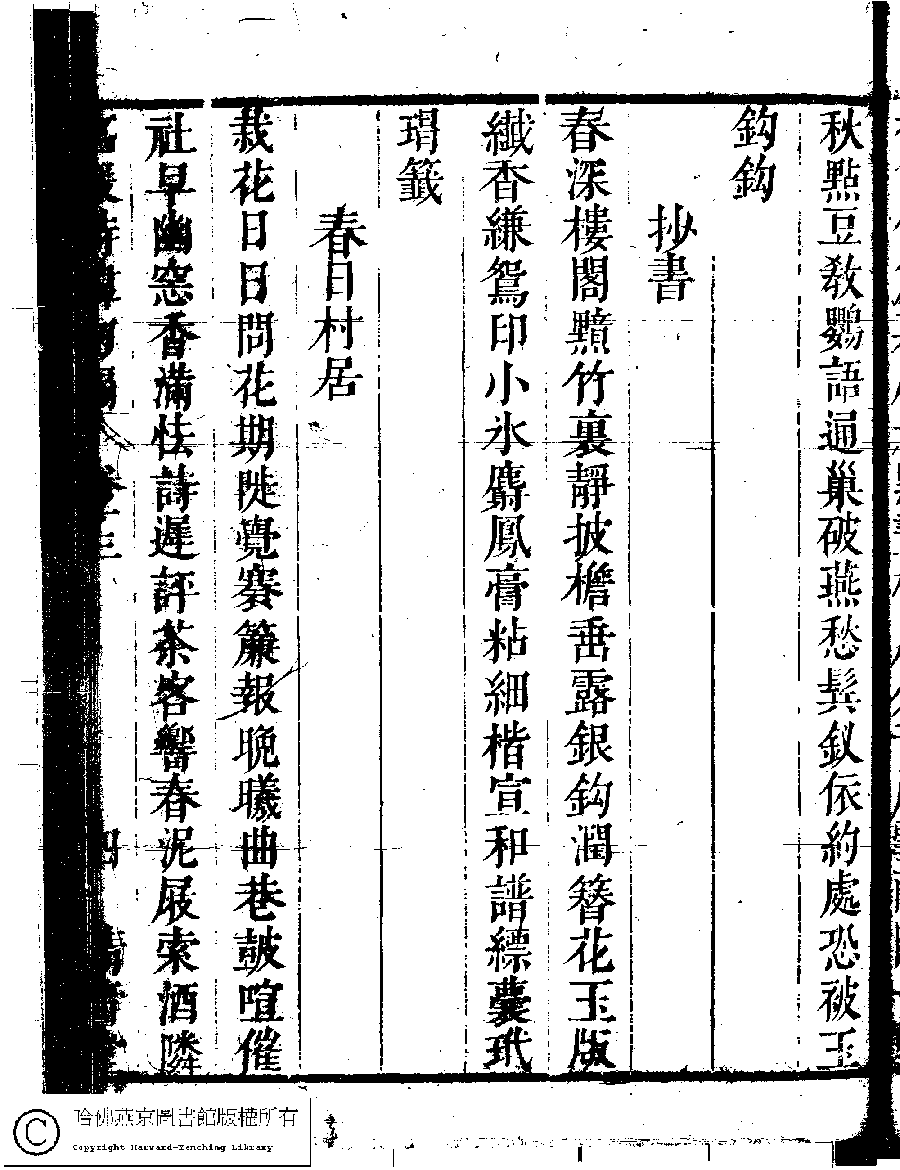 秋點豆教鸚語通巢破燕愁鬂釵依約處恐被玉
鈎鈎
抄書
春深樓閣黦竹裏靜披檐垂露銀鈎潤簪花玉版
纖杏縑鴛印小氷麝鳳膏粘細楷宣和譜縹囊玳
瑁籤
春日村居
栽花日日問花期陡覺寨簾報晚曦曲巷鼓喧催
社早幽窓香滿怯詩遲評茶客響春泥屐索酒隣
卷十三
四
哈佛燕京圖書館版權所有
Copyright Harvard-Yenching Library